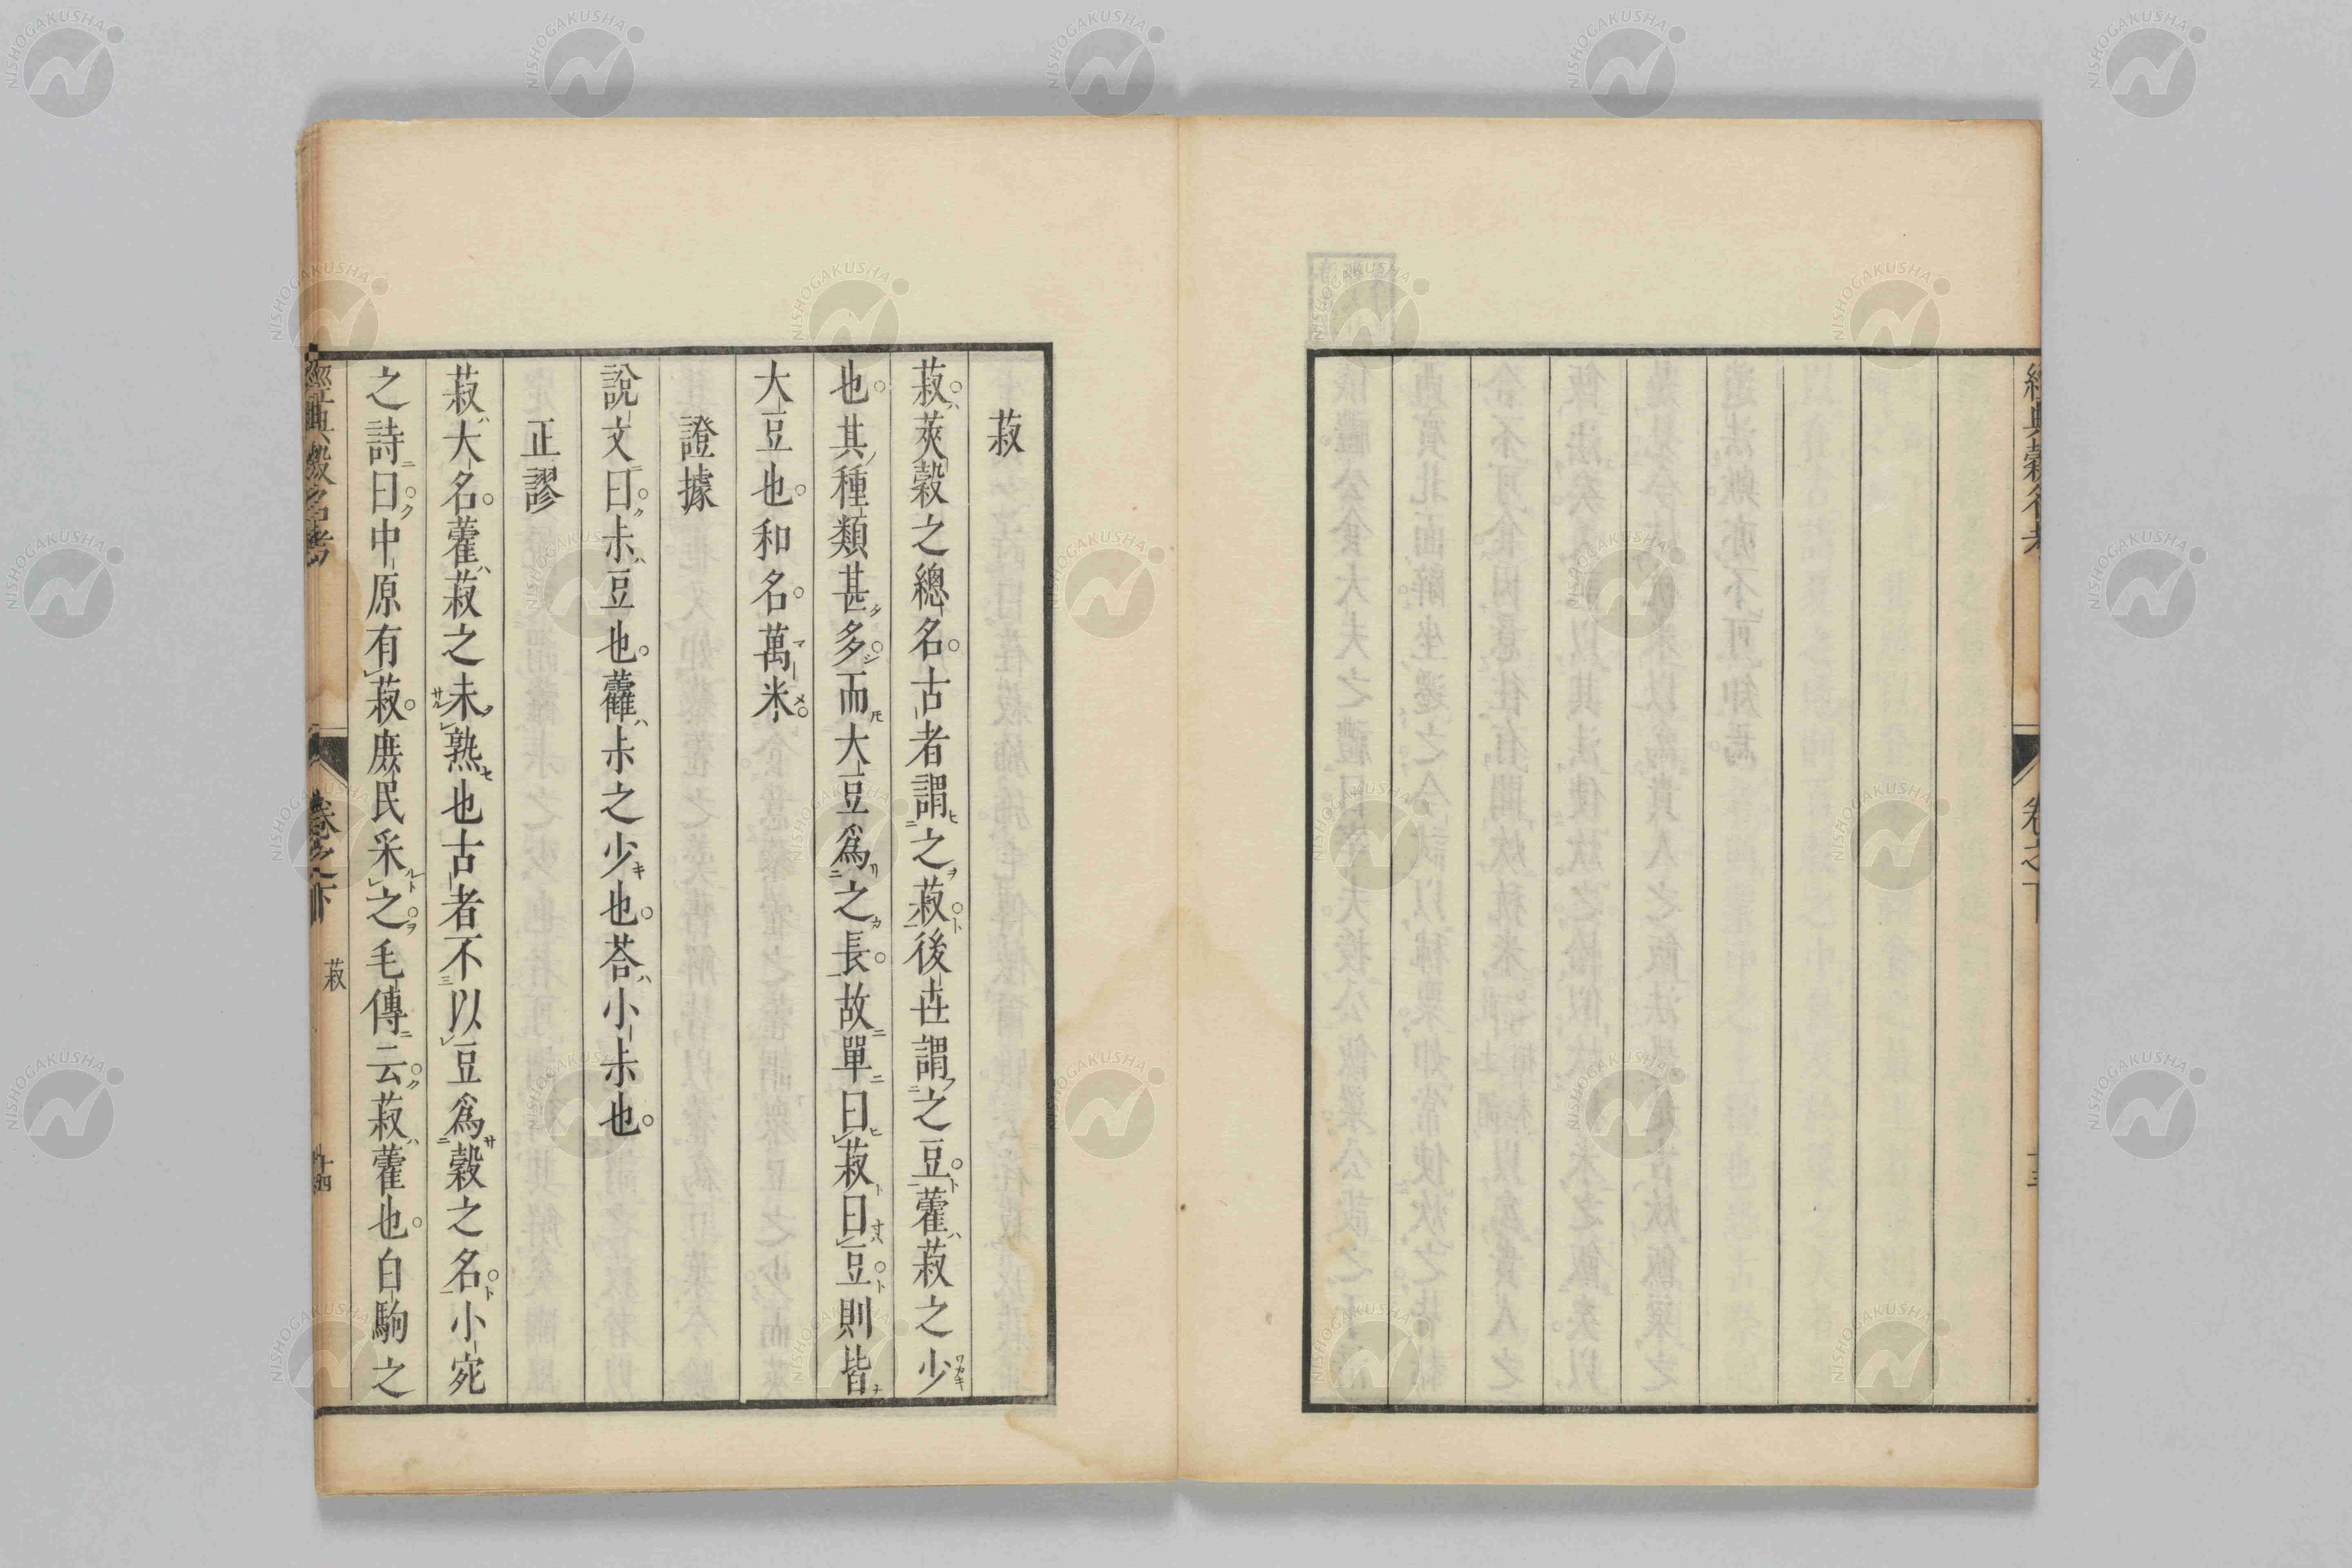 經典穀名考 卷之下
菽
菽莢穀之總名古者謂之菽後世謂之豆藿菽之少
也其種類甚多而大豆爲之長故單曰菽曰豆則皆
大豆也和名萬米
證據
說文曰尗豆也藿尗之少也荅小尗也
正謬
菽大名藿菽之未熟也古者不以豆爲穀之名小宛
之詩曰中原有菽庶民采之毛傳云菽藿也白駒之
經典穀名考 卷之下 菽 十四
NISHOGAKUSHA